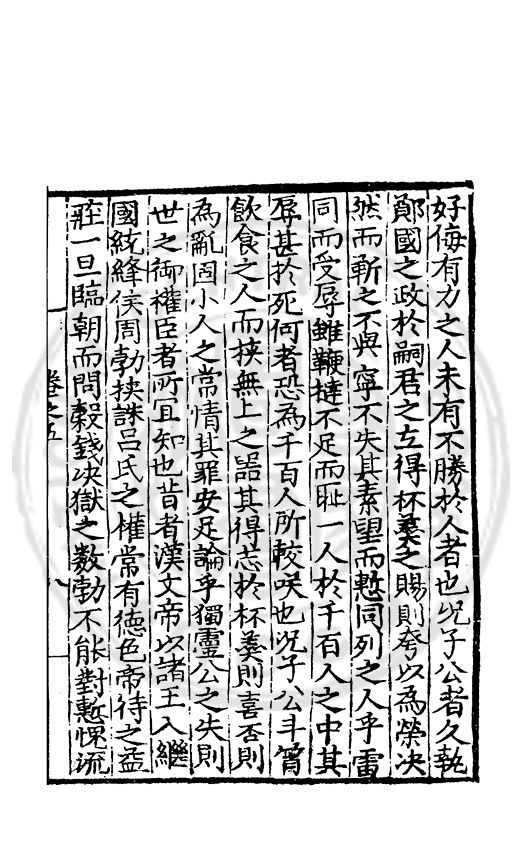 好侮有力之人未有不勝於人者也况子公者久執
鄭國之政於嗣君之立得杯羮之賜則夸以為榮决
然而靳之不與寧不失其素望而慙同列之人乎雷
同而受辱雖鞭撻不足而耻一人於千百人之中其
辱甚於死何者恐為千百人所較咲也况子公斗筲
飲食之人而挾無上之噐其得志於杯羮則喜否則
為亂固小人之常情其罪安足論乎獨靈公之失則
世之御權臣者所宜知也昔者漢文帝以諸王入繼
國統絳侯周勃挾誅呂氏之權常有德色帝待之益
莊一旦臨朝而問糓錢决獄之數勃不能對慙愧流
卷之五
八